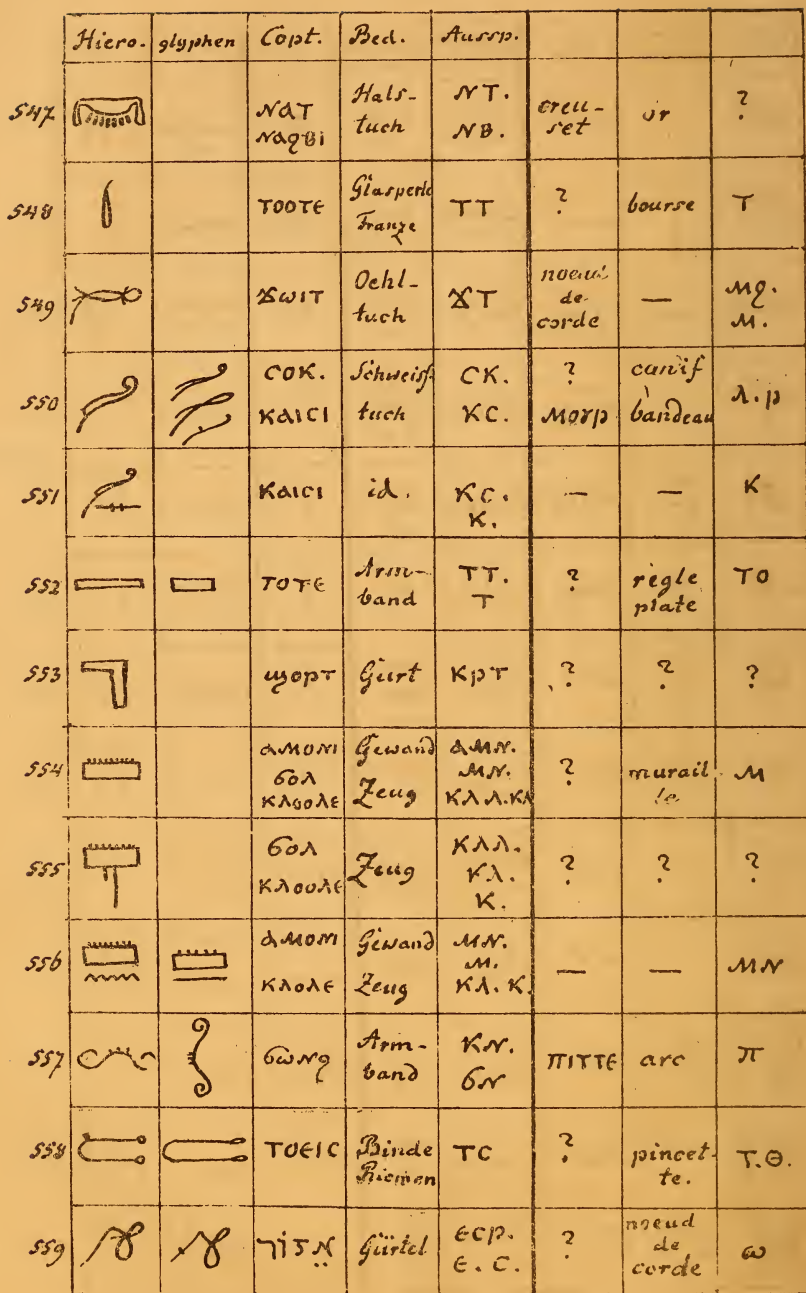 Hiero. glyphen Copt. Bed. Aussp.
547 ⲚⲀⲦ ⲚⲀϨⲂⲒ Hals-tuch ⲚⲦ. ⲚⲂ. creu-set or ?
548 ⲦⲞⲞⲦⲈ Glasperle Franze ⲦⲦ ? bourse Ⲧ
549 ϪⲰⲒⲦ Oehl-tuch ϪⲦ noeud de corde — ⲘϨ. Ⲙ.
550 ⲤⲞⲔ. ⲔⲀⲒⲤⲒ Schweiss-tuch ⲤⲔ. ⲔⲤ. ? ⲘⲞⲨⲢ canif bandeau ⲗ.ⲣ
551 ⲔⲀⲒⲤⲒ id. ⲔⲤ. Ⲕ. — — Ⲕ
552 ⲦⲞⲦⲈ Arm-band ⲦⲦ. Ⲧ ? règle plate ⲦⲞ
553 ϢⲞⲢⲦ Gurt ⲔⲢⲦ ? ? ?
554 ⲀⲘⲞⲚⲒ ϬⲞⲖ ⲔⲖⲞⲞⲖⲈ Gewand Zeug ⲀⲘⲚ. ⲘⲚ. ⲔⲖⲖ.ⲔⲖ ? murail le Ⲙ
555 ϬⲞⲖ ⲔⲖⲞⲞⲖⲈ Zeug ⲔⲖⲖ. ⲔⲖ. Ⲕ. ? ? ?
556 ⲀⲘⲞⲚⲒ ⲔⲖⲞⲖⲈ Gewand Zeug ⲘⲚ. Ⲙ. ⲔⲖ. Ⲕ. — — ⲘⲚ
557 ϬⲰⲚϨ Arm-band ⲔⲚ. ϬⲚ ⲠⲒⲦⲦⲈ arc Ⲡ
558 ⲦⲞⲈⲒⲤ Binde Riemen ⲦⲤ ? pincet-te. Ⲧ.Ⲑ.
559 אֵזוֹר Gürtel ⲈⲤⲢ. Ⲉ. Ⲥ. ? noeud de corde ⲱ